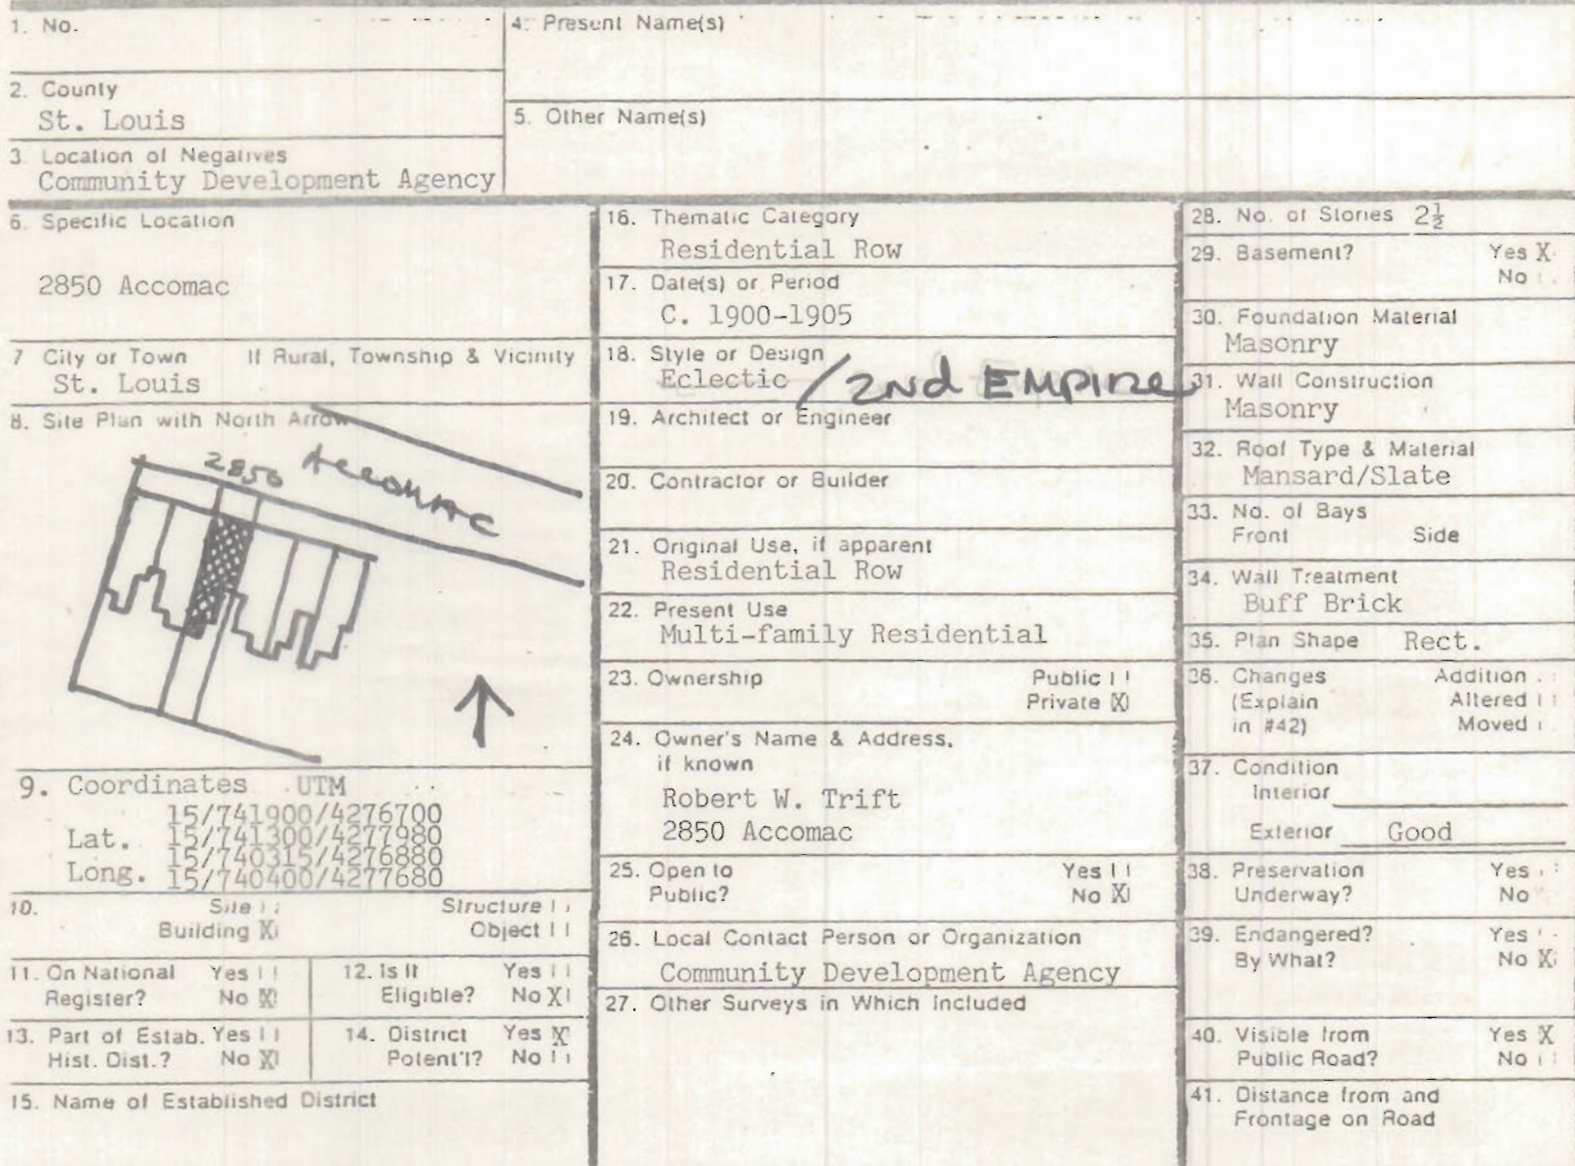 1. No.
4. Present Name(s)
2. County
St. Louis
5. Other Name(s)
3. Location of Negatives
Community Development Agency
6. Specific Location
2850 Accomac
7 City or Town If Rural, Township & Vicinity
St. Louis
8. Site Plan with North Arrow
2850 Accomac
9. Coordinates UTM
15/741900/4276700
Lat. 15/741300/4277980
15/740315/4276880
Long. 15/740400/4277680
10. Site Structure
Building X Object
11. On National Register? Yes No X
12. Is It Eligible? Yes No X
13. Part of Estab. Hist. Dist.? Yes No X
14. District Potent'l? Yes X No
15. Name of Established District
16. Thematic Category
Residential Row
17. Date(s) or Period
C. 1900-1905
18. Style or Design
Eclectic / 2nd EMPIRE
19. Architect or Engineer
20. Contractor or Builder
21. Original Use, if apparent
Residential Row
22. Present Use
Multi-family Residential
23. Ownership Public
Private X
24. Owner's Name & Address,
if known
Robert W. Trift
2850 Accomac
25. Open to Yes
Public? No X
26. Local Contact Person or Organization
Community Development Agency
27. Other Surveys in Which Included
28. No. of Stories 2½
29. Basement? Yes X
No
30. Foundation Material
Masonry
31. Wall Construction
Masonry
32. Roof Type & Material
Mansard/Slate
33. No. of Bays
Front Side
34. Wall Treatment
Buff Brick
35. Plan Shape Rect.
36. Changes Addition
(Explain Altered
in #42) Moved
37. Condition
Interior
Exterior Good
38. Preservation Yes
Underway? No
39. Endangered? Yes
By What? No X
40. Visible from Yes X
Public Road? No
41. Distance from and
Frontage on Road